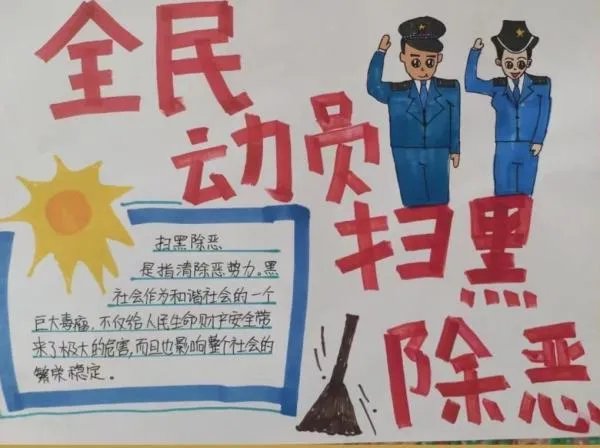 全民
动员
扫黑
除恶
扫黑除恶
是指清除恶势力。黑
社会作为和谐社会的一个
巨大毒瘤，不仅给人民生命财产安全带
来了极大的危害，而且也影响整个社会的
繁荣稳定。